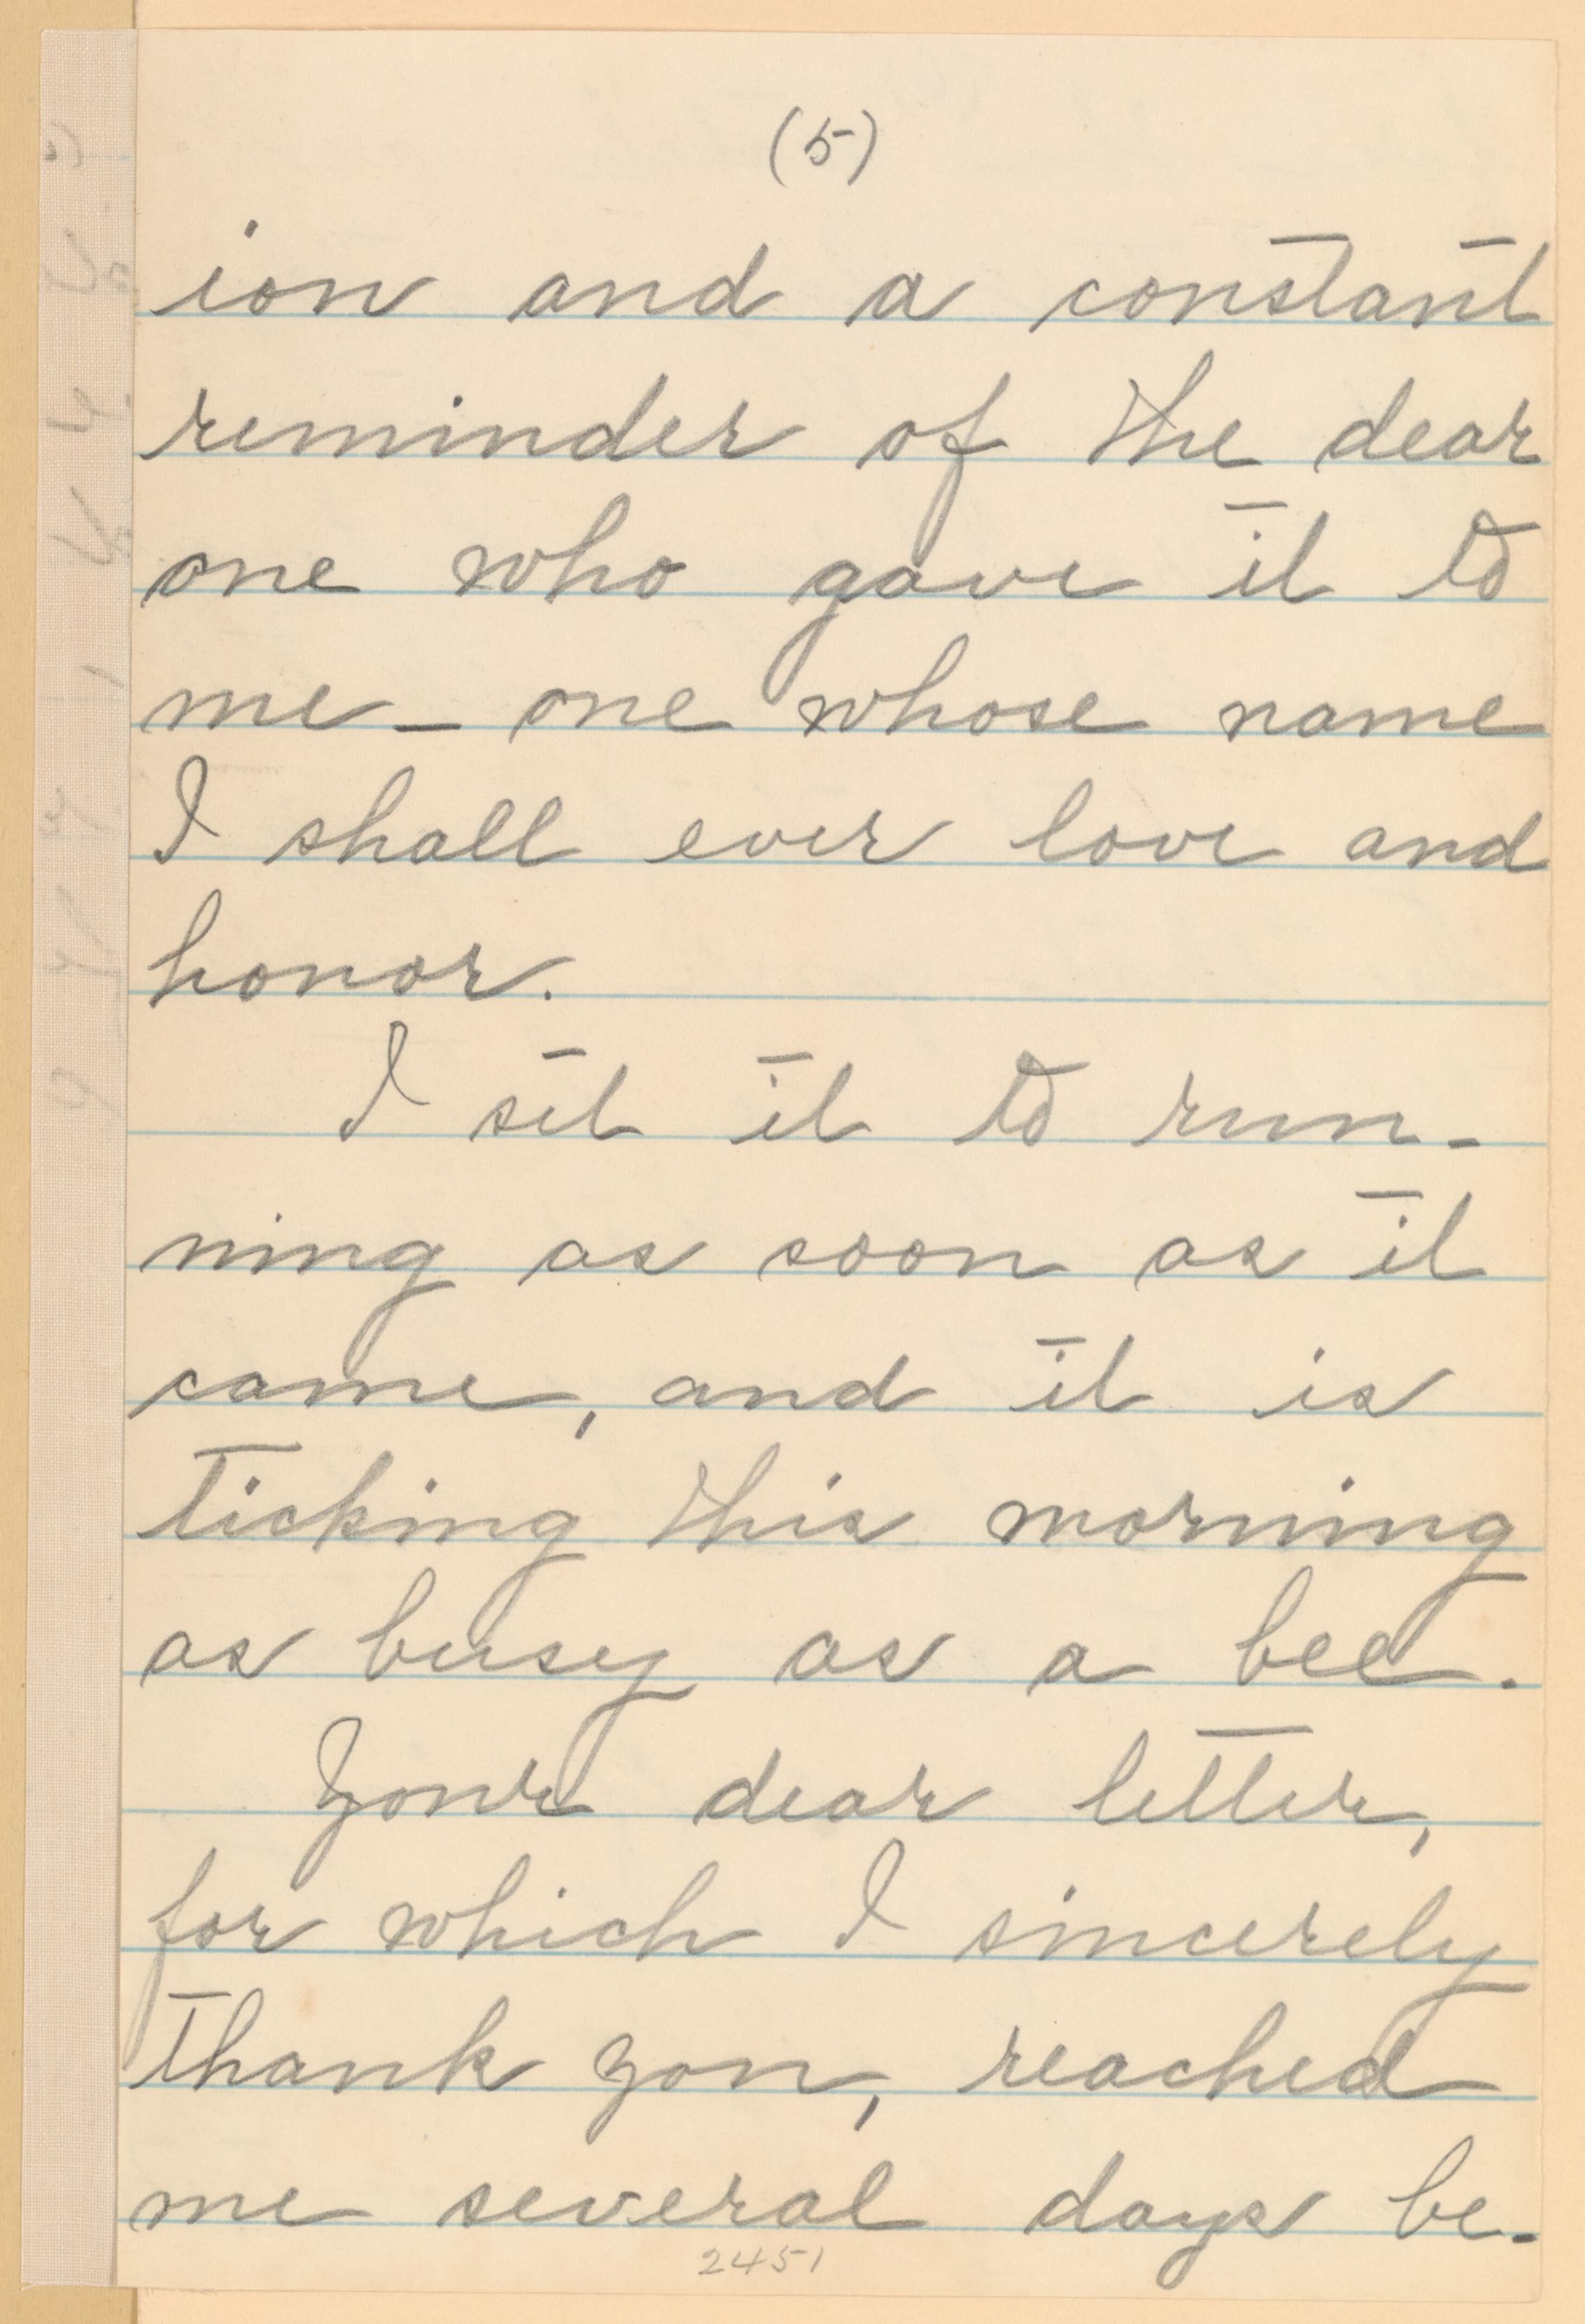 (5)
ion and a constant
reminder of the dear
one who gave it to
me – one whose name
I shall ever love and
honor.
I set it to run-
ning as soon as it
came, and it is
ticking this morning
as busy as a bee.
Your dear letter,
for which I sincerely
thank you, reached
me several days be-
2451